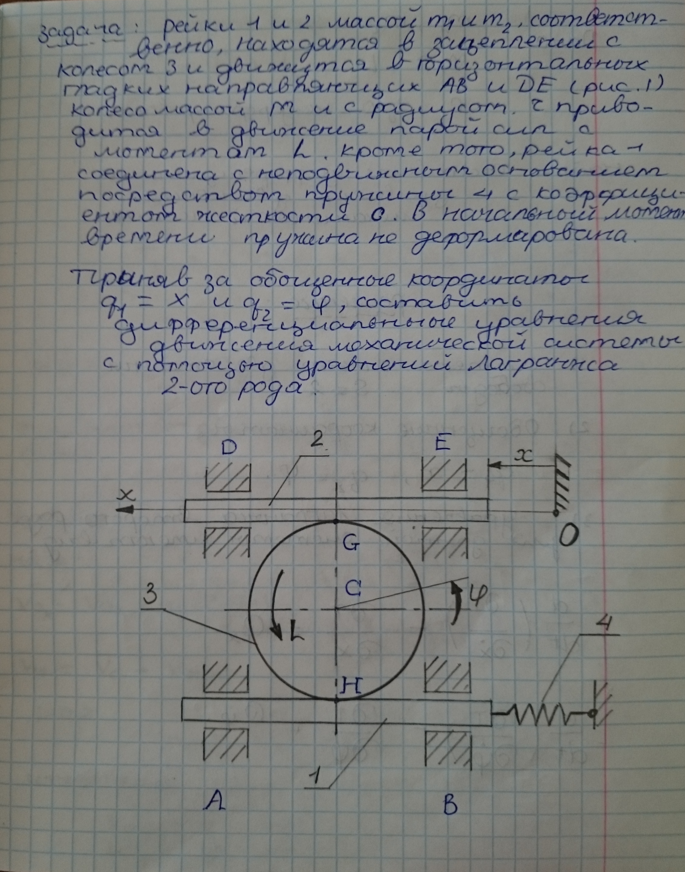 задача: рейки 1 и 2 массой m₁ и m₂, соответст-
венно, находятся в зацеплении с
колесом 3 и движутся в горизонтальных
гладких направляющих АВ и DE (рис.1)
колесо массой m и с радиусом r приво-
дится в движение парой сил с
моментам L. кроме того, рейка 1
соединена с неподвижным основанием
посредством пружины 4 с коэффици-
ентом жесткости c. В начальный момент
времени пружина не деформирована.
Приняв за обощенные координаты
q₁ = x и q₂ = φ, составить
дифференциальные уравнения
движения механической системы
с помощью уравнений Лагранжа
2-ого рода.
D 2 E
x x
G O
3 C φ
L 4
H
1
A B